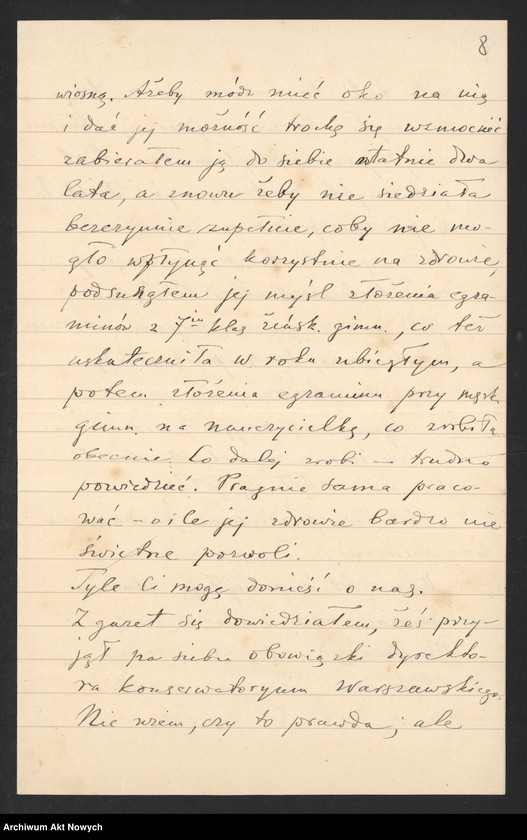 8
wiosną. Ażeby módz mieć oko na nią
i dać jej możność trochę się wzmocnić
zabierałem ją do siebie ostatnie dwa
lata, a znowu żeby nie siedziała
bezczynnie zupełnie, coby nie mo-
gło wpłynąć korzystnie na zdrowie,
podsunąłem jej myśl złożenia egza-
minów z 7iu klas żeńsk. gimn., co też
uskuteczniła w roku ubiegłym, a
potem złożenia egzaminu przy męsk.
gimn. na nauczycielkę, co zrobiła
obecnie. Co dalej zrobi — trudno
powiedzieć. Pragnie sama praco-
wać – o ile jej zdrowie bardzo nie
świetne pozwoli.
Tyle Ci mogę donieść o nas.
Z gazet się dowiedziałem, żeś przy-
jął na siebie obowiązki dyrekto-
ra konserwatoryum Warszawskiego.
Nie wiem, czy to prawda; ale
Archiwum Akt Nowych